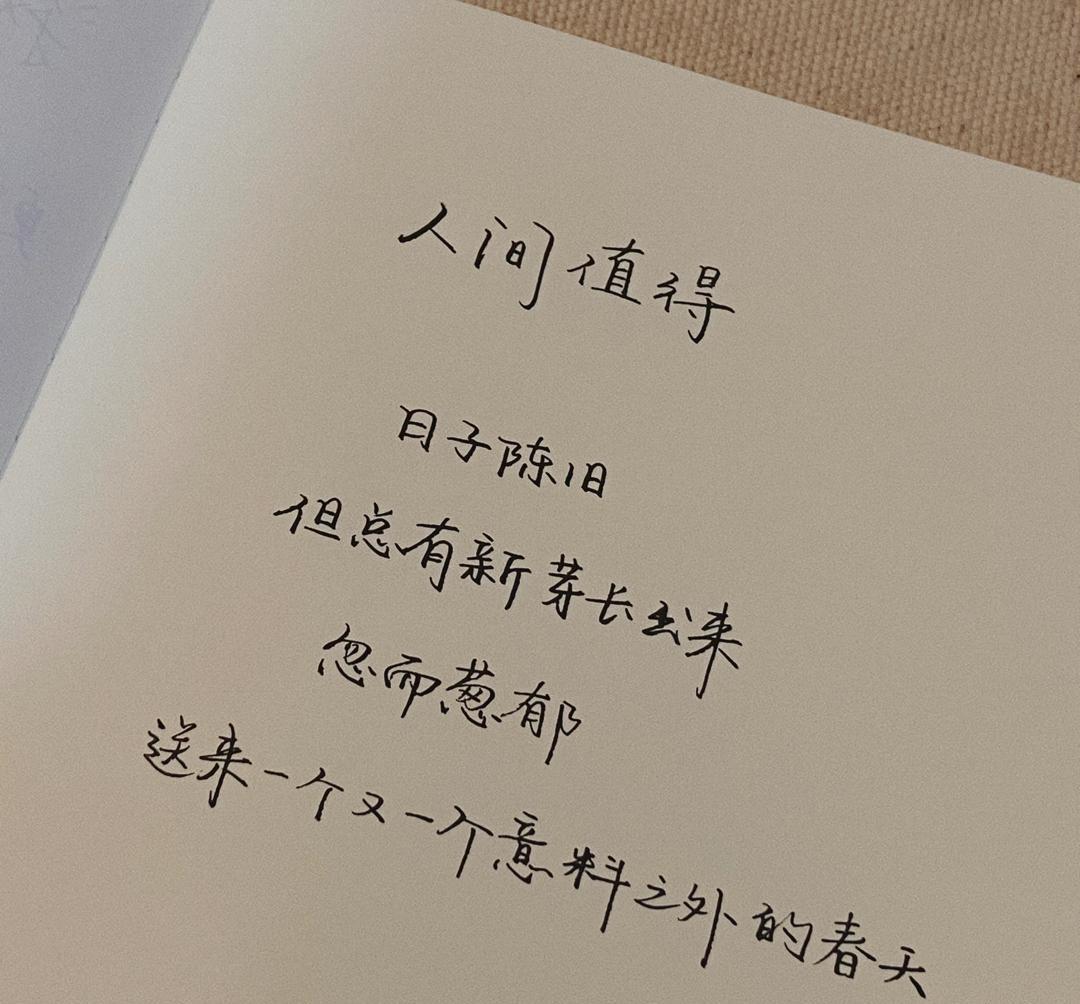 人间值得
日子陈旧
但总有新芽长出来
忽而葱郁
送来一个又一个意料之外的春天